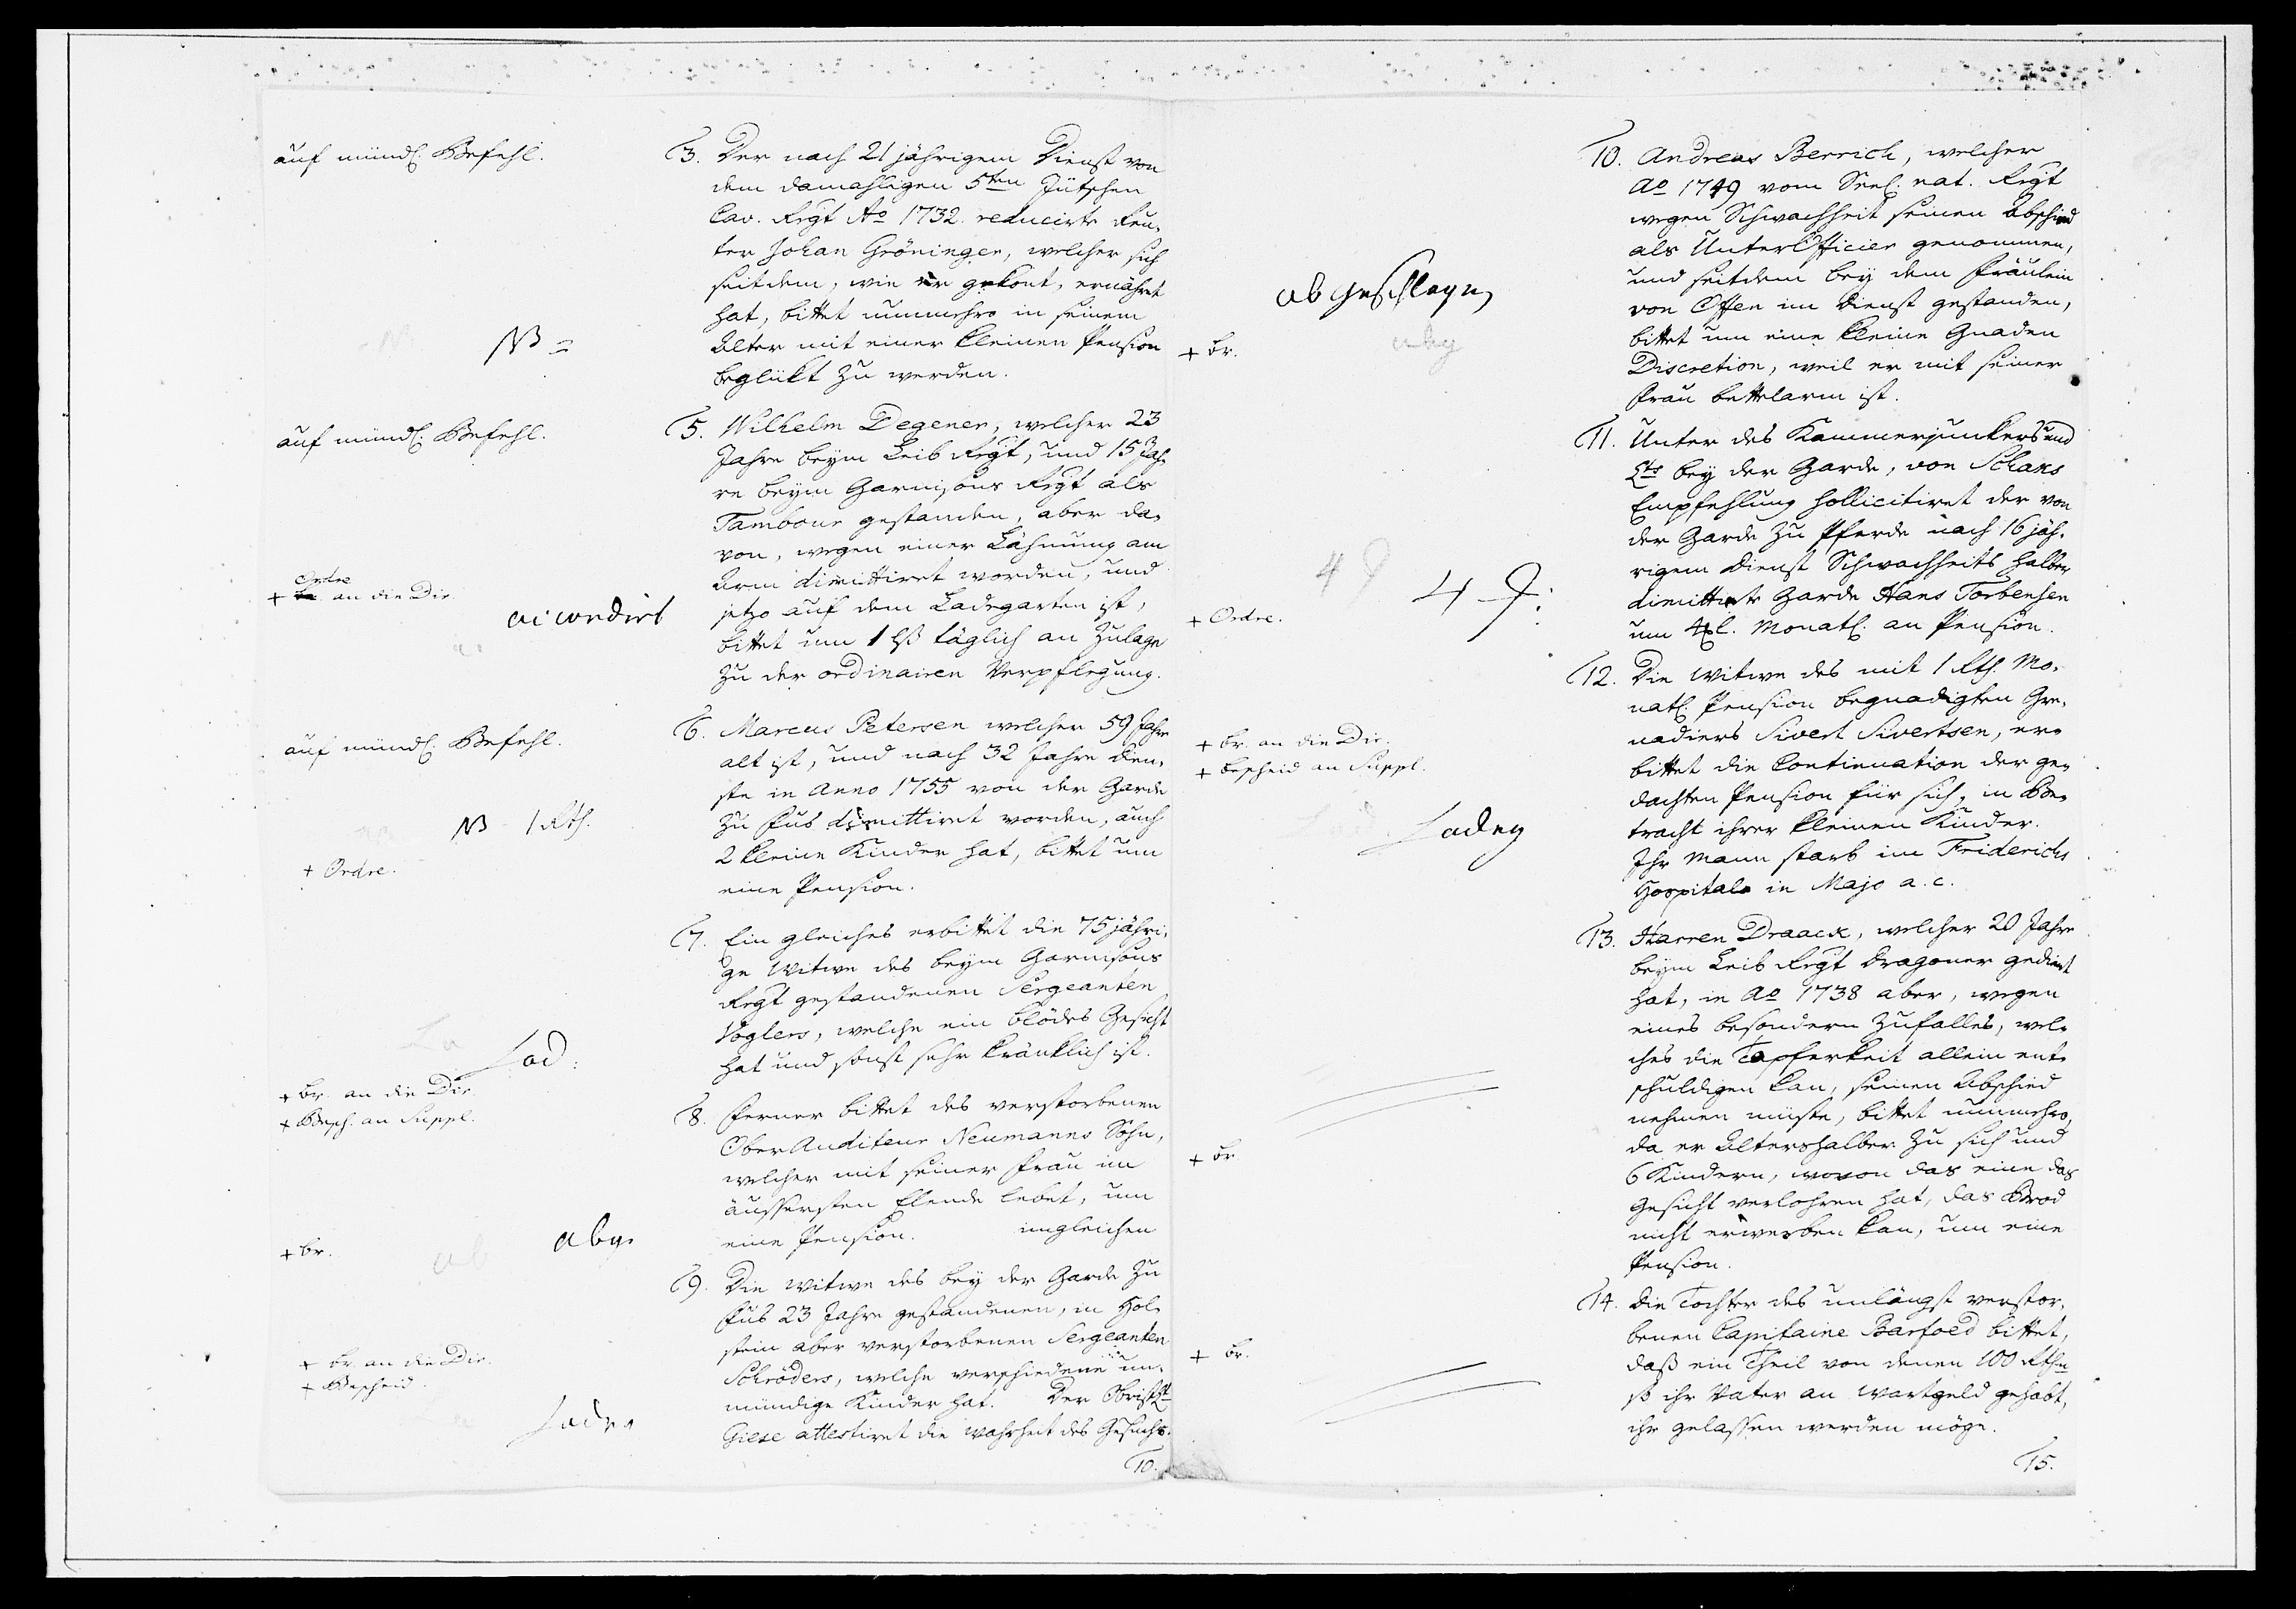 auf mündl: Befehl.
3. Der nach 21 jährigem Dienst von
dem damahligen 5ten Jütschen
Cav. Regt Ao 1732. reducirte Reu-
ter Johan Gröninger, welcher sich
seitdem, wie er gekont, ernähret
hat, bittet nunmehro in seinem
Alter mit einer kleinen Pension
beglükt zu werden.
NB =
auf mündl: Befehl.
5. Wilhelm Degener, welcher 23
Jahre beym Leib Regt, und 15 Jah-
re beym Garnisons Regt als
Tambour gestanden, aber da-
von, wegen einer Lähmung am
Arm dimittiret worden, und
jetzo auf dem Ladegarten ist,
bittet um 1 lß täglich an Zulage
zu der ordinairen Verpflegung.
Ordre
+ an die Dir.
accordirt
auf mündl: Befehl.
6. Marcus Petersen welcher 59 Jahr
alt ist, und nach 32 Jahre Dien-
ste in Anno 1755 von der Garde
zu Fus dimittiret worden, auch
2 kleine Kinder hat, bittet um
eine Pension.
NB 1 Rth.
+ Ordre.
7. Ein gleiches erbittet die 75 jähri-
ge Witwe des beym Garnisons
Regt gestandenen Sergeanten
Voglers, welche ein blödes Gesicht
hat und sonst sehr kränklich ist.
Lad:
+ br. an die Dir.
+ Besch. an Suppl.
8. Ferner bittet des verstorbenen
Ober Auditeur Neumanns Sohn,
welcher mit seiner Frau im
äussersten Elende lebet, um
eine Pension. imgleichen
+ br.
abg.
9. Die Witwe des bey der Garde zu
Fus 23 Jahre gestandenen, in Hol-
stein aber verstorbenen Sergeanten
Schröders, welche verschiedene un-
mündige Kinder hat. Der Obrist Lt
Giese attestiret die Wahrheit des Gesuchs.
+ br. an die Dir.
+ Bescheid.
Ladeg
10.
10. Andreas Berrich, welcher
Ao 1749 vom Seel. nat. Regt
wegen Schwachheit seinen Abschied
als Unter Officier genommen,
und seitdem bey dem Fräulein
von Offen im Dienst gestanden,
bittet um eine kleine Gnaden
Discretion, weil er mit seiner
Frau bettelarm ist.
abgeschlagen
+ br.
abg
11. Unter des Kammerjunkers und
Lts bey der Garde, von Schaks
Empfehlung sollicitiret der von
der Garde zu Pferde nach 16 jäh-
rigem Dienst Schwachheits halber
dimittirte Garde Hans Torbensen
um 4 monatl. an Pension.
+ Ordre.
12. Die Witwe des mit 1 Rth. Mo-
natl. Pension begnadigten Gre-
nadiers Sivert Sivertsen, er-
bittet die Continuation der ge-
dachten Pension für sich, in Be-
tracht ihrer kleinen Kinder.
Ihr Mann starb im Friderichs
Hospitale in Majo a. c.
+ br. an die Dir.
+ bescheid an Suppl.
Ladeg
13. Harren Draack, welcher 20 Jahre
beym Leib Regt Dragoner gedient
hat, in Ao 1738 aber, wegen
eines besondern Zufalles, wel-
ches die Tapferkeit allein ent-
schuldigen kan, seinen Abschied
nehmen müste, bittet nunmehro,
da er Altershalber zu sich und
6 Kindern, wovon das eine das
Gesicht verlohren hat, das Brod
nicht erwerben kan, um eine
Pension.
+ br.
14. Die Tochter des unlängst verstor-
benen Capitaine Barfoed bittet,
daß ein Theil von denen 100 Rthn
so ihr Vater an Wartgeld gehabt,
ihr gelassen werden möge.
+ br.
15.